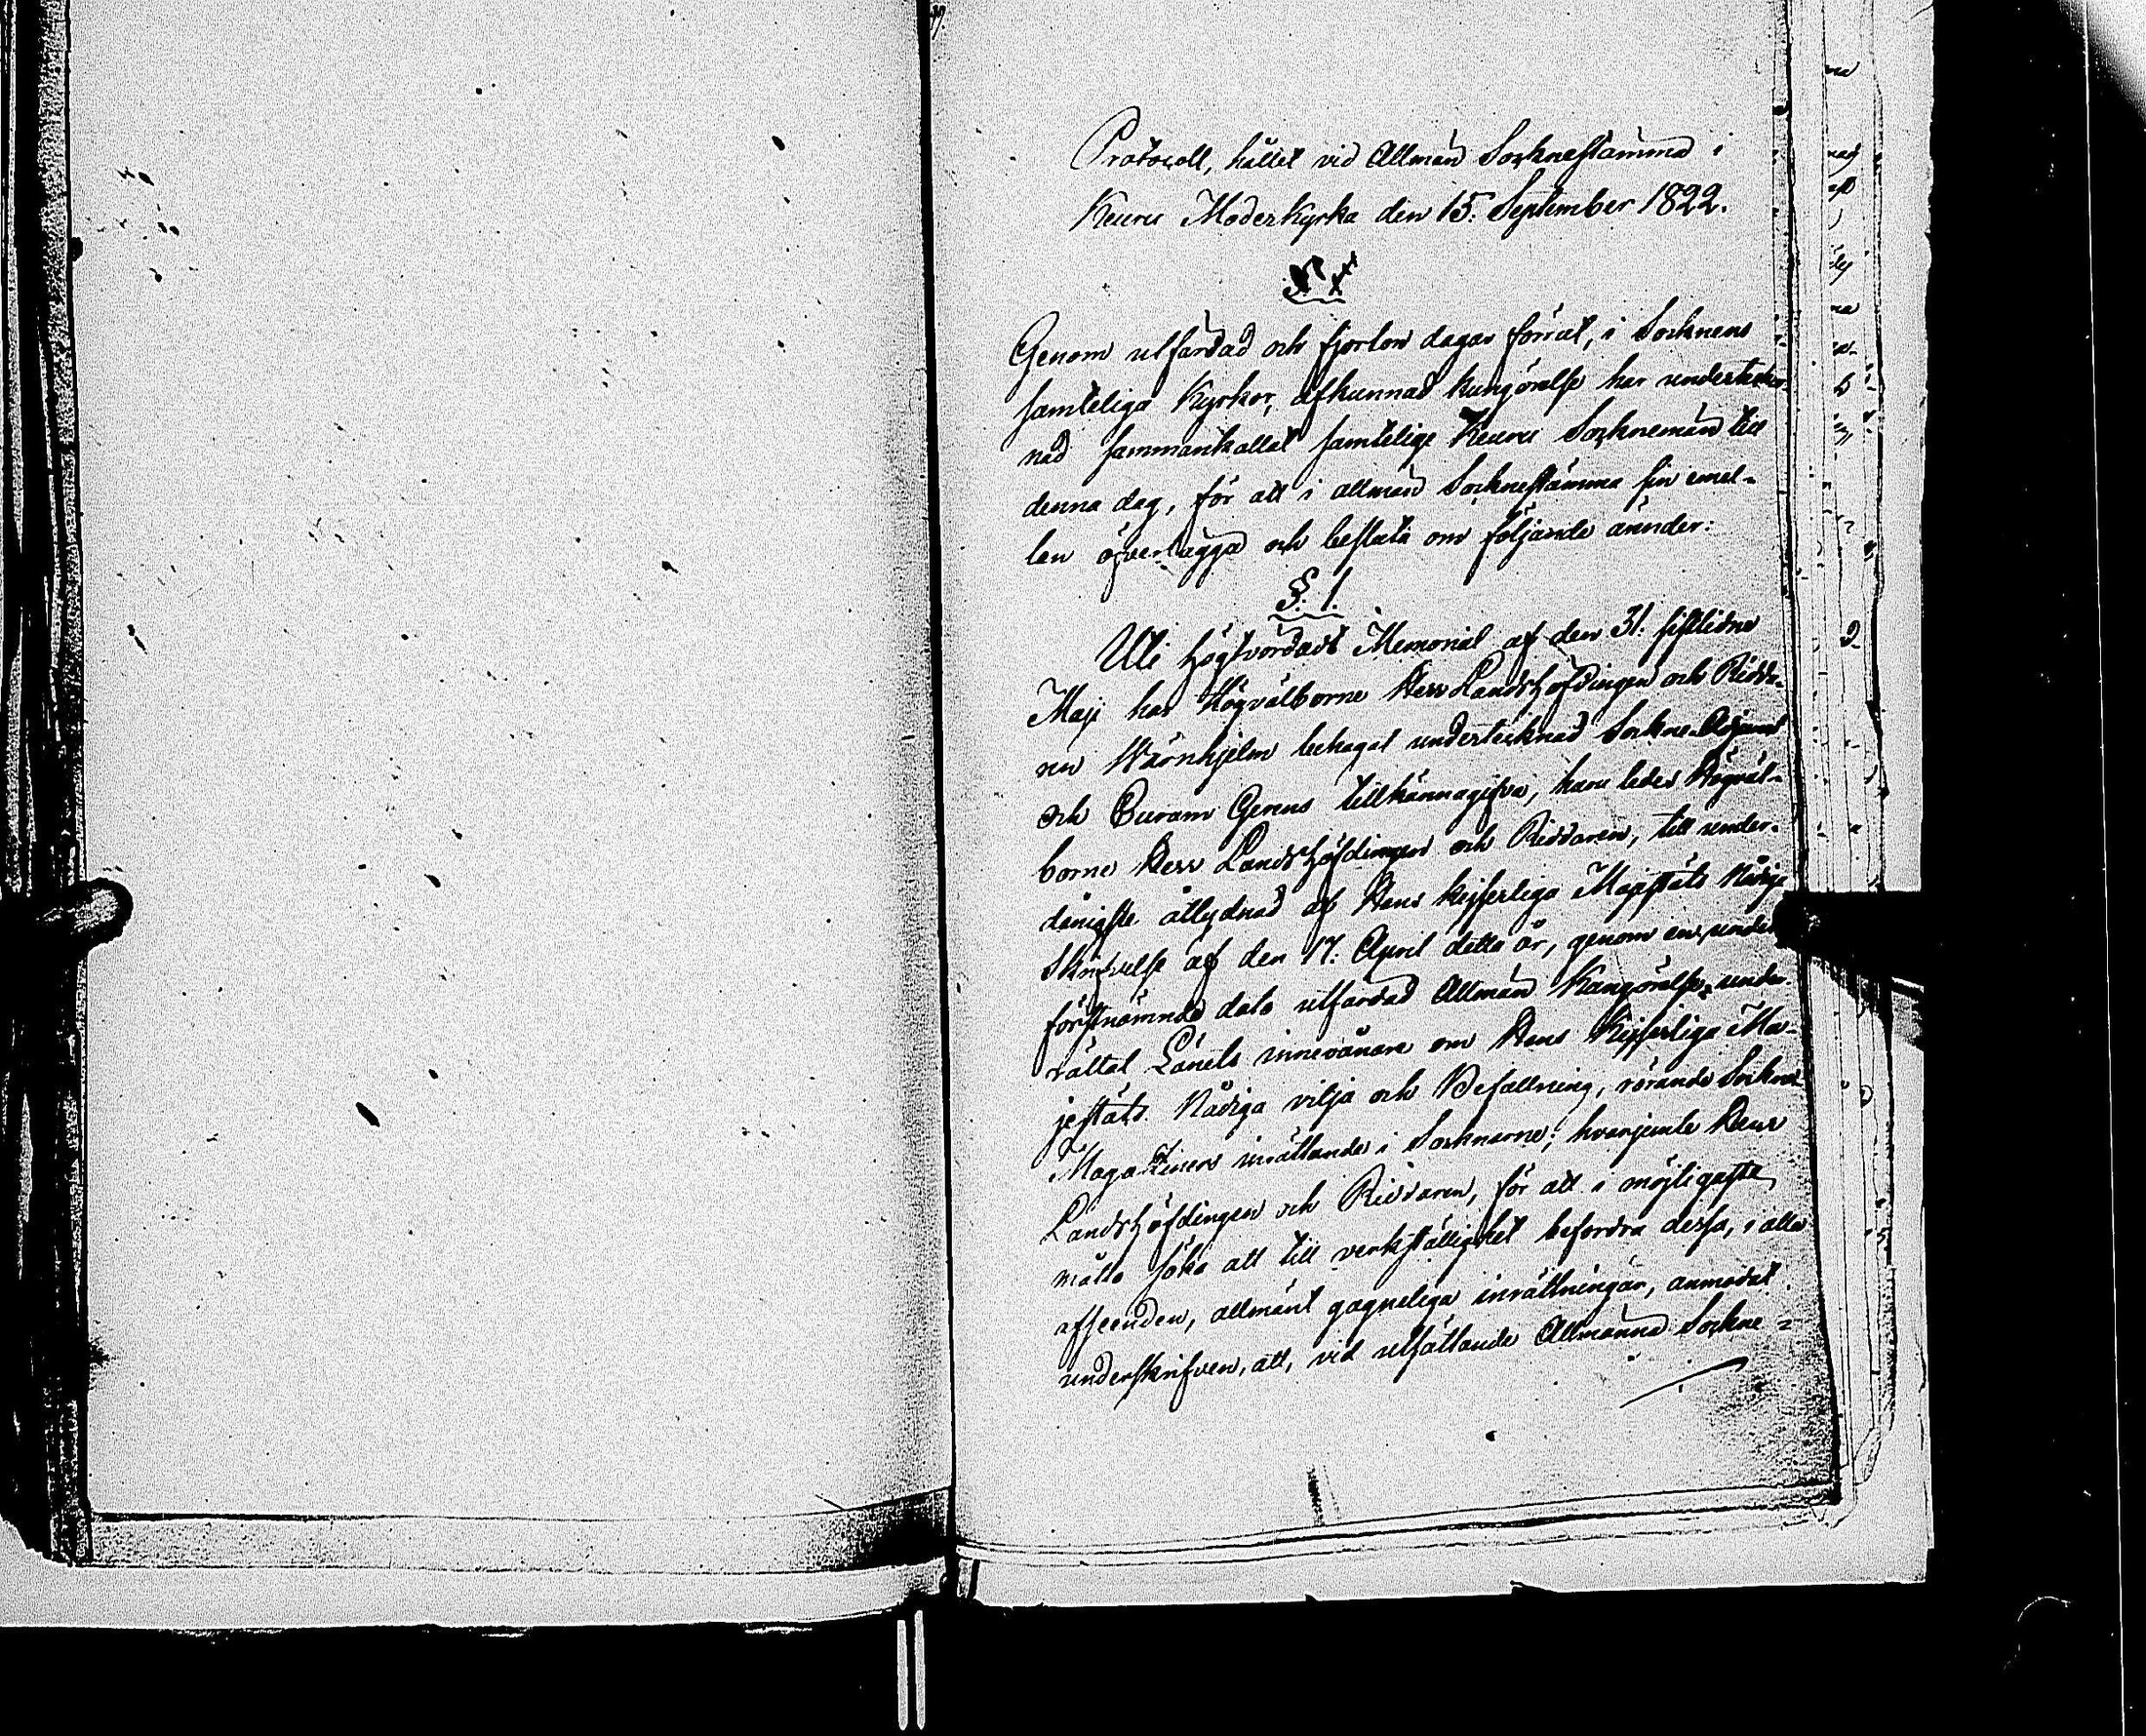 Protocoll, hållet vid Allmän Sockneftämma i
Keuru Moderkyrka den 15. September 1822.
Genom utfärdad och fjorton dagar förrut, i Socknens
samteliga Kyrkor, afkunnad kungörelse har underteck-
nad sammankallat samtelige Keuru Socknemän till
denna dag, för att i allmän Socknestämma sin emel-
lan öfverlägga och besluta om följande ämnder:
§. 1.
Uti högtvördadt Memorial af den 31. sistlidne
Maji har Högvälborne Herr Landshöfdingen och Ridda-
ren Wärnhjelm behagat undertecknad Sockne Adjunct
och Curam Gerens tillkännagifva, huru ledes Högväl-
borne Herr Landshöfdingen och Riddaren, till under-
dånigste åtlydnad af Hans Kejserliga Majestäts Nådiga
Skrifvelse af den 17. April detta år, genom en, under
förstnämnde dato utfärdad Allmän Kungörelse, under-
rättat Länets innevånare om Hans Kejserliga Ma-
jestäts Nådiga vilja och Befallning, rörande Sockne-
Magaziners inrättande i Socknarne; hvarjemte Herr
Landshöfdingen och Riddaren, för att i möjligaste
måtto söka att till verkställighet befordra dessa, i alla
afseenden, allmänt gagneliga inrättningar, anmodat
underskrifven, att, vid utsättande Allmänna Sockne-